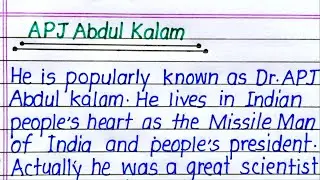 APJ Abdul Kalam
He is popularly known as Dr. APJ
Abdul kalam. He lives in Indian
people's heart as the Missile Man
of India and people's president.
Actually he was a great scientist